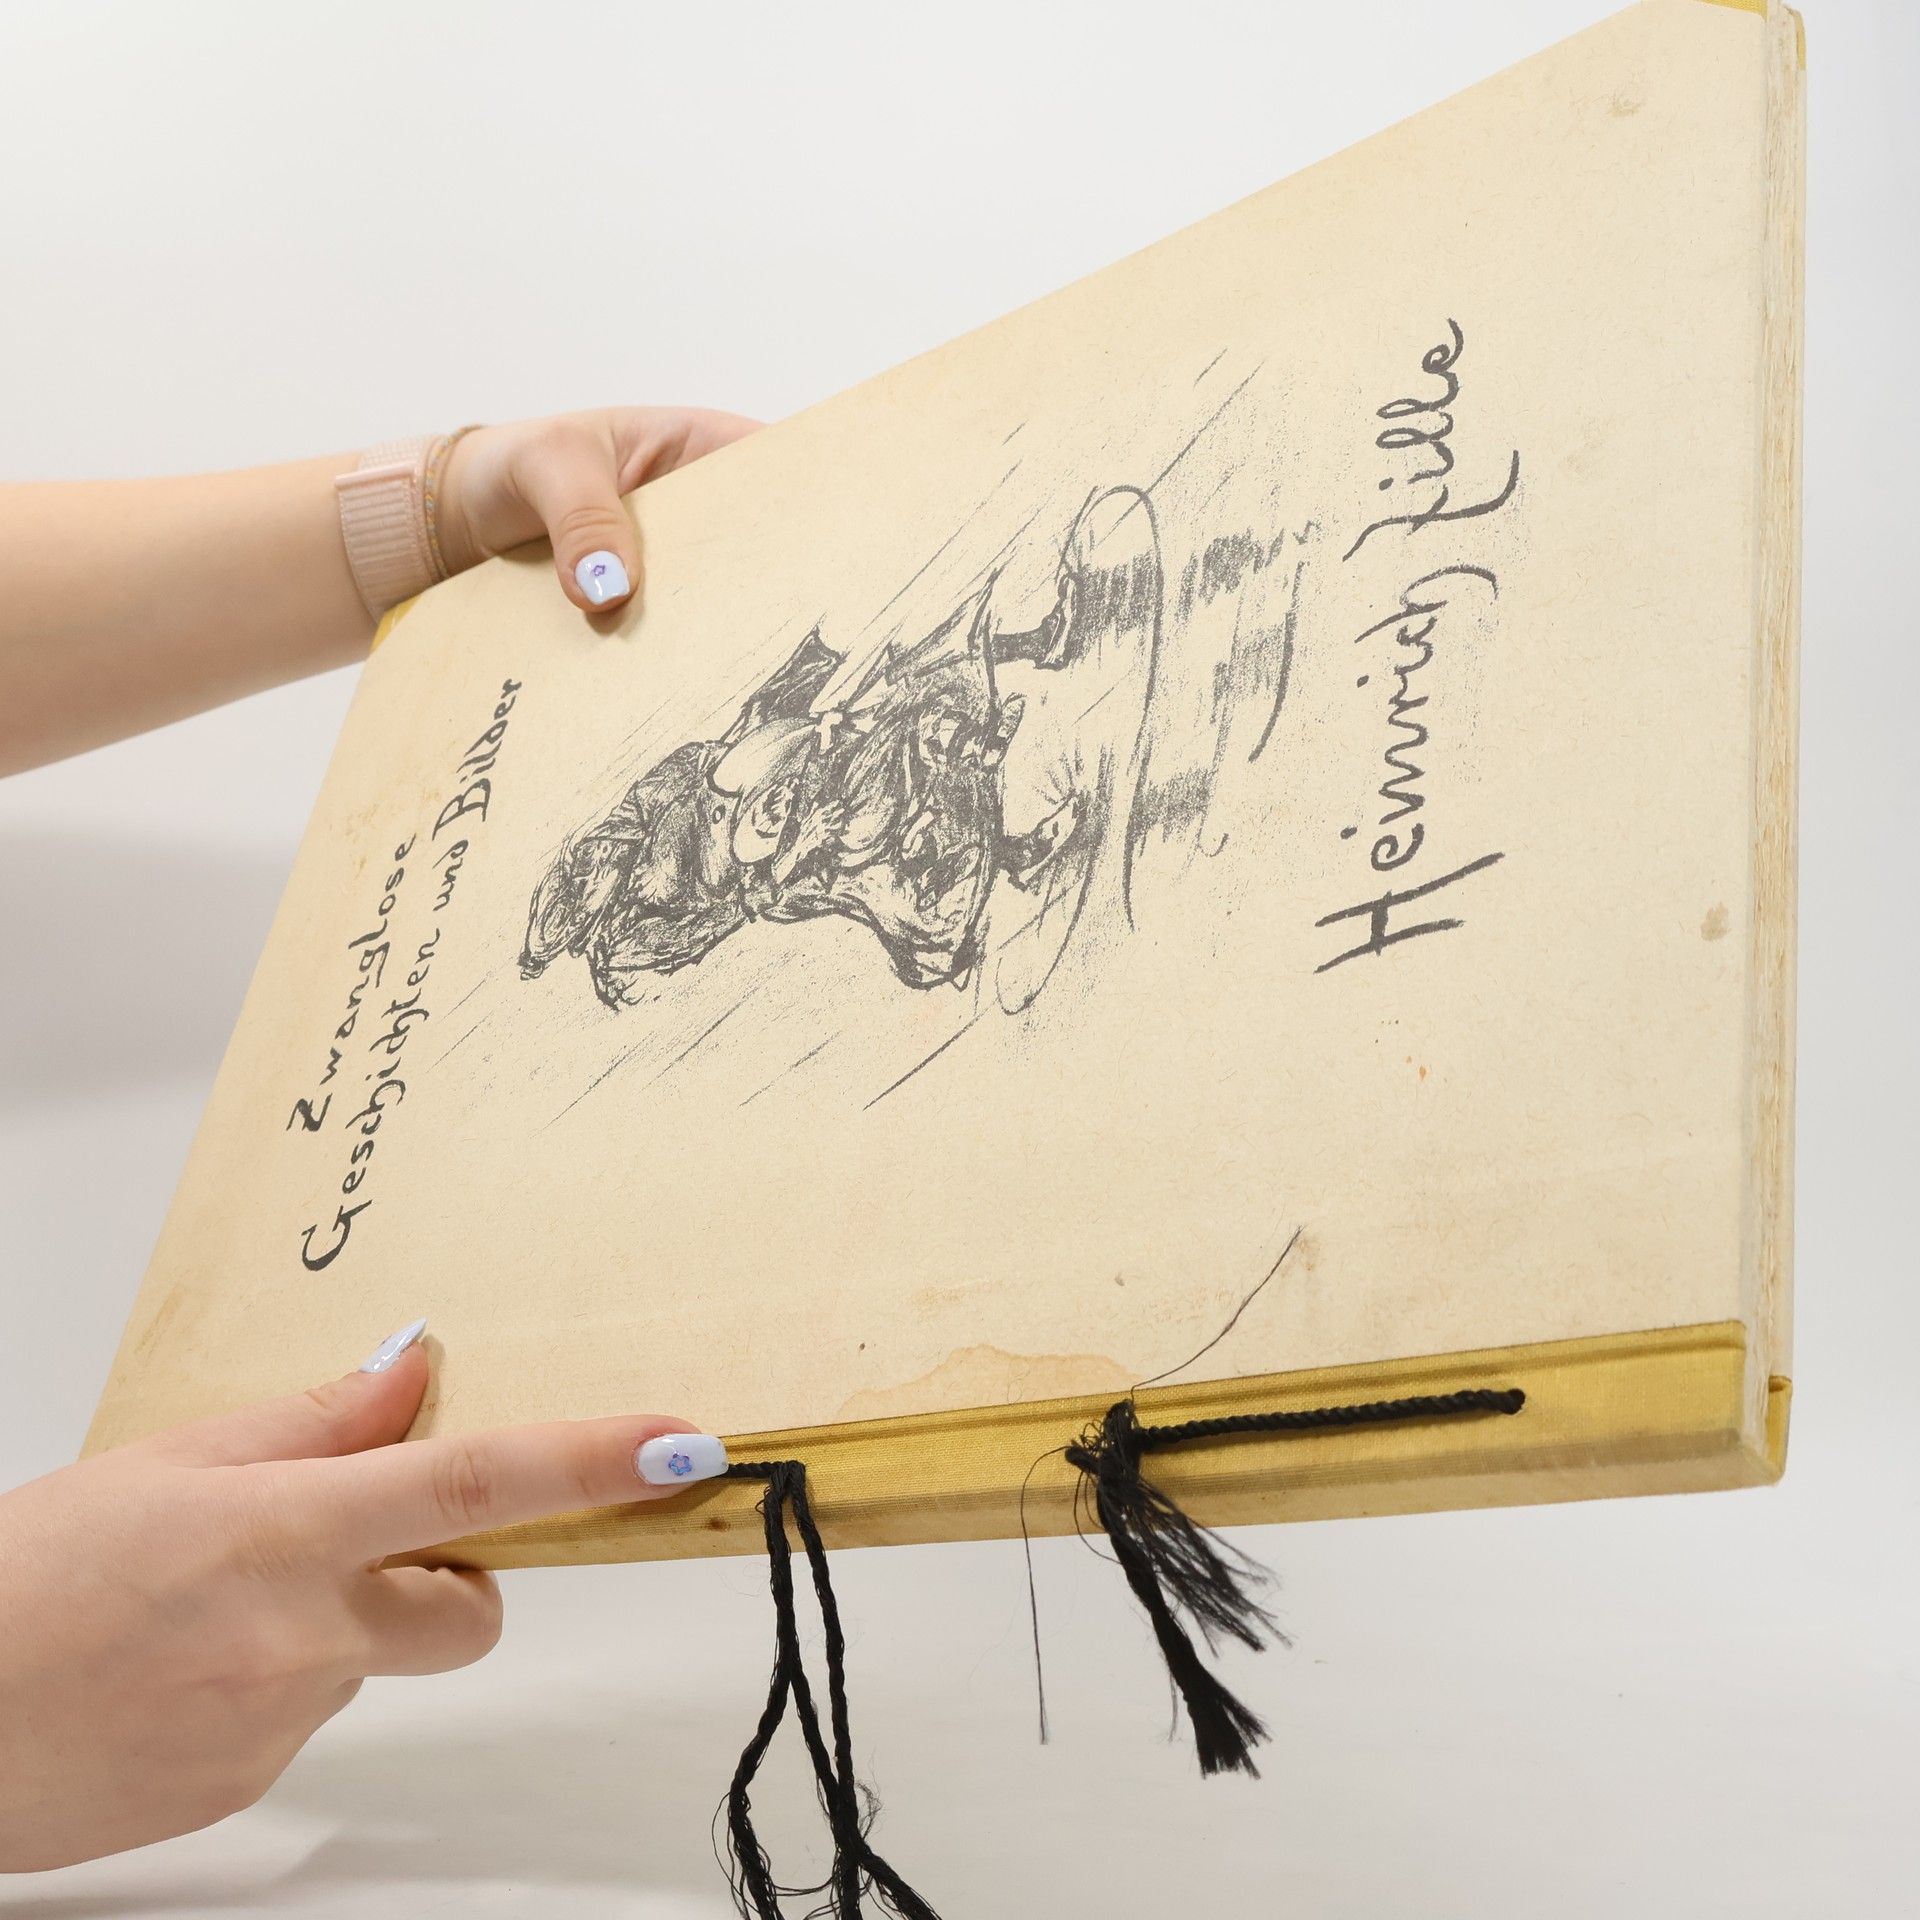 Zwanglose
Geschichten und Bilder
Heinrich Zille